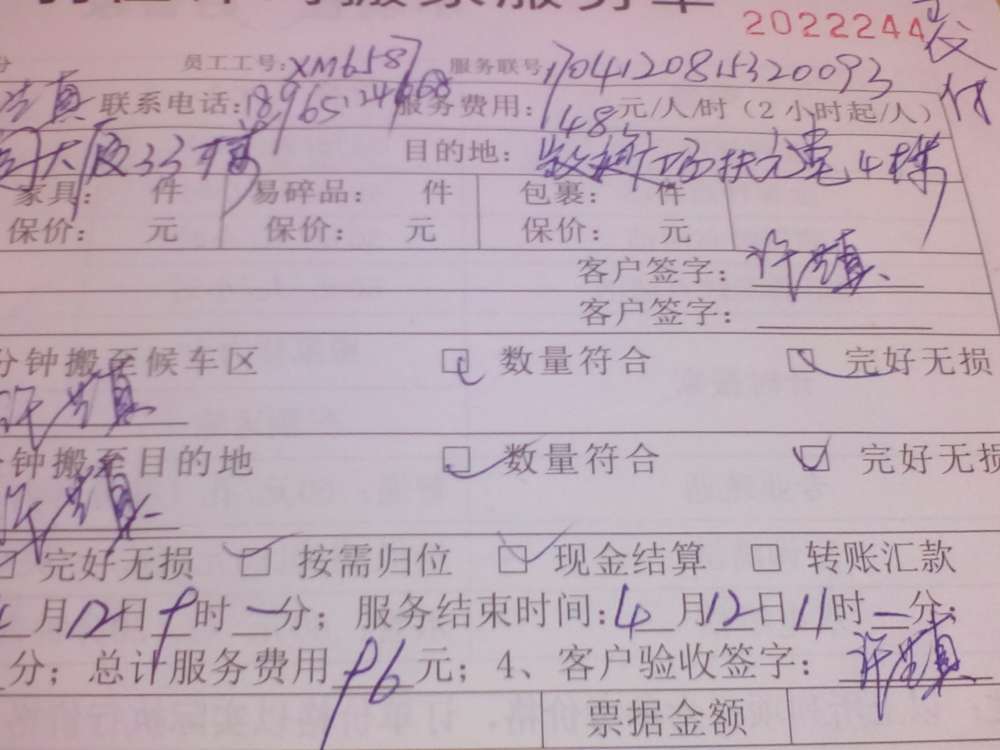 2022244
员工工号: XM6587 服务联号 1704120815320093
联系电话: 18965124668 服务费用: 148元/人/时（2小时起/人）
目的地: 4栋
家具: 件 易碎品: 件 包裹: 件
保价: 元 保价: 元 保价: 元
客户签字:
客户签字:
分钟搬至候车区 数量符合 完好无损
分钟搬至目的地 数量符合 完好无损
完好无损 按需归位 现金结算 转账汇款
4月12日9时一分; 服务结束时间: 4月12日11时一分;
分; 总计服务费用 96元; 4、客户验收签字:
票据金额